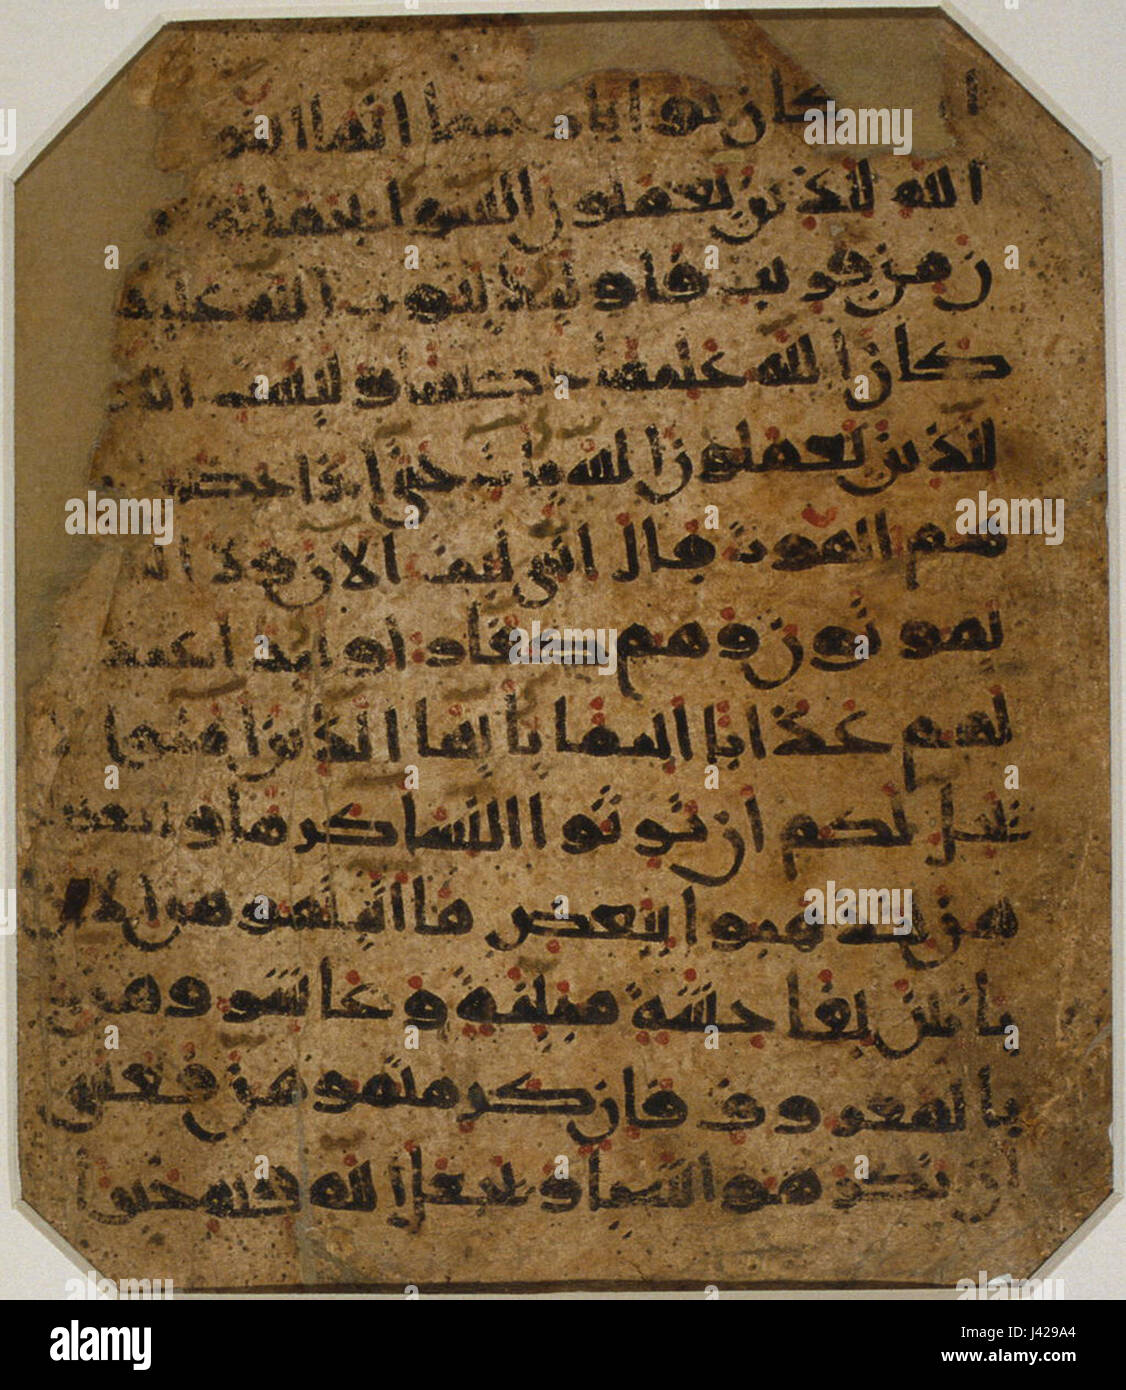 كان توابا رحيما انما التو
الله للذين يعملون السوا بجهلة
ن من قريب فاوليك يتوب الله عليهم
كان الله عليما حكيما وليست التو
للذين يعملون السيات حتى اذا حضر
هم الموت قال اني تبت الان ولا الذ
يموتون وهم كفار اوليك اعتدنا
لهم عذابا اليما يايها الذين امنوا لا
يحل لكم ان ترثوا النسا كرها ولا تعضلو
هن لتذهبوا ببعض ما اتيتموهن الا ان
ياتين بفحشة مبينة وعاشروهن
بالمعروف فان كرهتموهن فعسى
ان تكرهوا شيا ويجعل الله فيه خيرا
alamy
Image ID: J429A4
www.alamy.com